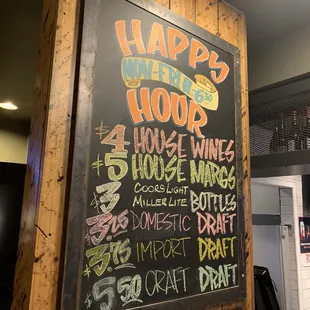 HAPPY
MON-FRI -6:30
HOUR
$4 HOUSE WINES
$5 HOUSE MARGS
$3 COORS LIGHT
MILLER LITE BOTTLES
$3.25 DOMESTIC DRAFT
$3.75 IMPORT DRAFT
$5.50 CRAFT DRAFT